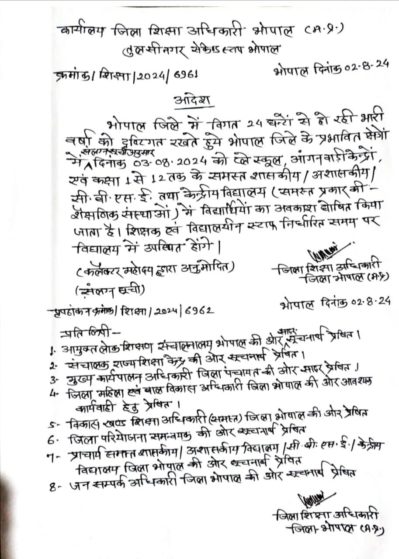 कार्यालय जिला शिक्षा अधिकारी भोपाल (म.प्र.)
तुलसीनगर सेकेण्ड स्टाप भोपाल
क्रमांक/शिक्षा/2024/6961 भोपाल दिनांक 02-8-24
आदेश
भोपाल जिले में विगत 24 घण्टों से हो रही भारी
वर्षा को दृष्टिगत रखते हुये भोपाल जिले के प्रभावित क्षेत्रों
संलग्न सूची अनुसार
में दिनांक 03-08-2024 को प्ले स्कूल, आंगनवाडी केन्द्रों,
एवं कक्षा 1 से 12 तक के समस्त शासकीय/अशासकीय/
सी.बी.एस.ई. तथा केन्द्रीय विद्यालय (समस्त प्रकार की-
शैक्षणिक संस्थाओं) में विद्यार्थियों का अवकाश घोषित किया
जाता है। शिक्षक एवं विद्यालयीन स्टाफ निर्धारित समय पर
विद्यालय में उपस्थित होंगे।
(कलेक्टर महोदय द्वारा अनुमोदित)
जिला शिक्षा अधिकारी
जिला भोपाल (म.प्र)
(संलग्न सूची)
पृष्ठांकन क्रमांक/शिक्षा/2024/6962 भोपाल दिनांक 02-8-24
प्रतिलिपी:-
1. आयुक्त लोक शिक्षण संचालनालय भोपाल की ओर सादर सूचनार्थ प्रेषित।
2- संचालक राज्य शिक्षा केन्द्र की ओर सूचनार्थ प्रेषित।
3. मुख्य कार्यपालन अधिकारी जिला पंचायत की ओर सादर प्रेषित।
4. जिला महिला एवं बाल विकास अधिकारी जिला भोपाल की ओर आवश्यक
कार्यवाही हेतु प्रेषित।
5- विकास खण्ड शिक्षा अधिकारी (समस्त) जिला भोपाल की ओर सूचनार्थ प्रेषित
6. जिला परियोजना समन्वयक की ओर सूचनार्थ प्रेषित
7- प्राचार्य समस्त शासकीय/अशासकीय विद्यालय/सी.बी.एस.ई/केन्द्रीय
विद्यालय जिला भोपाल की ओर सूचनार्थ प्रेषित
8- जन सम्पर्क अधिकारी जिला भोपाल की ओर सूचनार्थ प्रेषित
जिला शिक्षा अधिकारी
जिला- भोपाल (म.प्र)